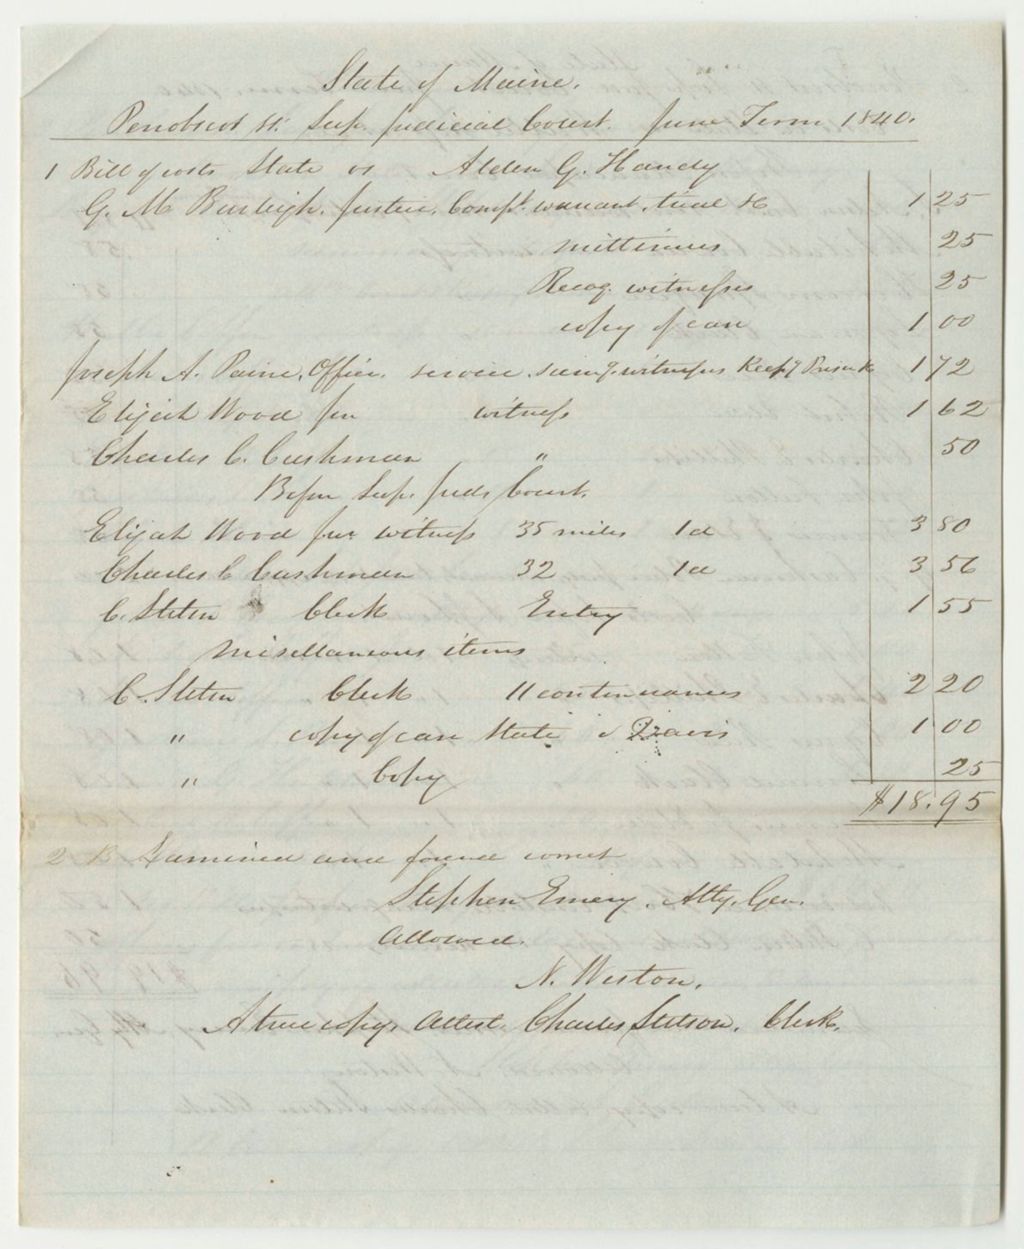 State of Maine.
Penobscot ss. Sup. Judicial Court. June Term 1840.
1 Bill of costs State vs Alden G. Handy
G. M Burleigh. Justice. Compt. warrant, trial &c 1 25
mittimus 25
Recog. witnesses 25
copy of case 1 00
Joseph A. Paine, Officer. service. sumg. witnesses Keepg 1 72
Elijah Wood for witness 1 62
Charles C. Cushman " 50
Before Sup. Jud. Court.
Elijah Wood for witness 35 miles 1d 3 80
Charles C Cushman 32 1d 3 56
C. Stetson Clerk Entry 1 55
Miscellaneous items
C. Stetson Clerk 11 continuances 2 20
" copy of case State v Davis 1 00
" Copy 25
$18.95
Examined and found correct
Stephen Emery, Atty. Gen.
Allowed.
N. Weston.
A true copy, Attest Charles Stetson, Clerk.